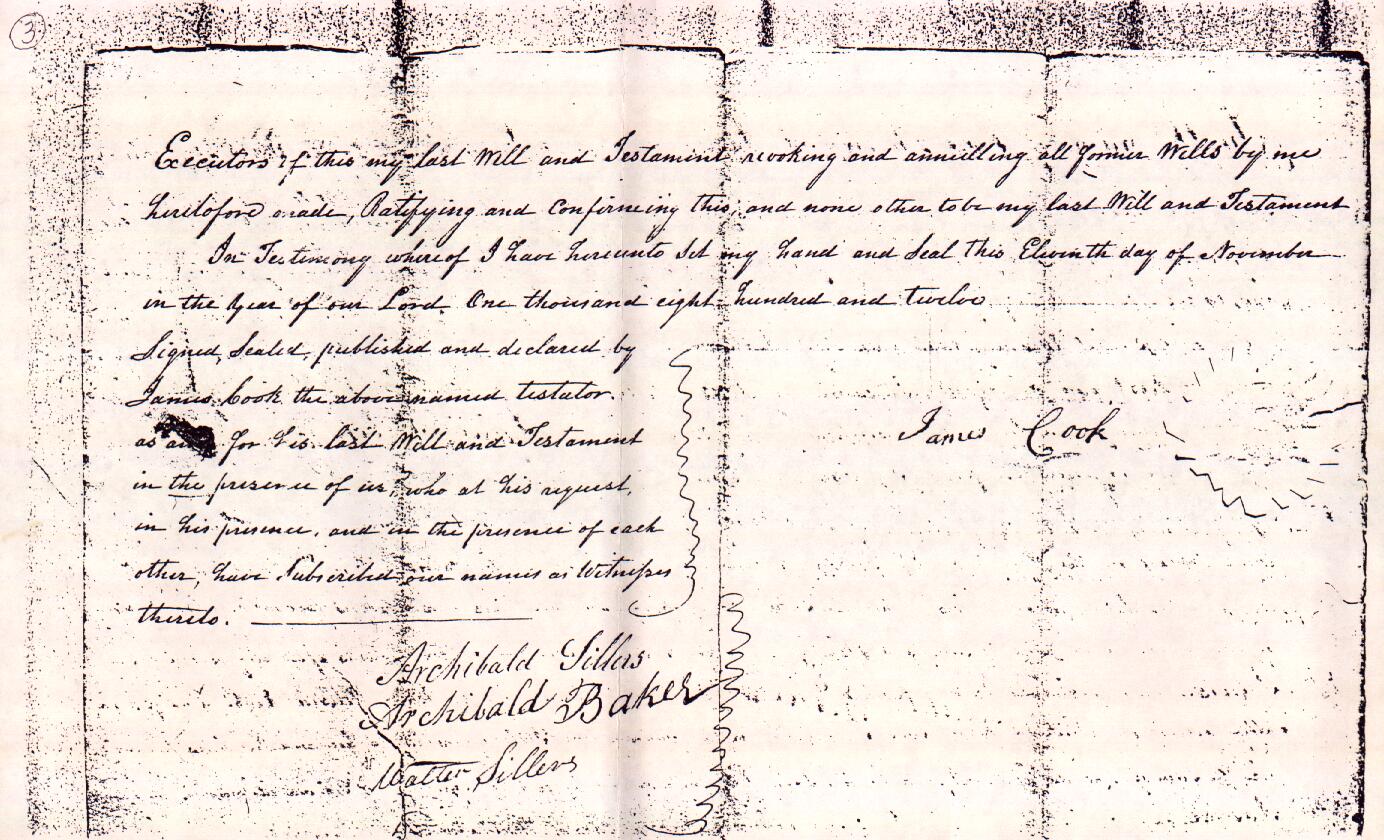 3
Executors of this my last Will and Testament revoking and annulling all former Wills by me
heretofore made, Ratifying and Confirmeing this, and none other to be my last Will and Testament
In Testimony whereof I have hereunto Set my hand and Seal this Eleventh day of November
in the Year of our Lord. One thousand eight hundred and twelve
Signed, Sealed, published and declared by
James Cook the above named testator.
as for his last Will and Testament
in the presence of us, who at his request,
in his presence, and in the presence of each
other, have Subscribed our names as Witnesses
thereto.
James Cook
Archibald Sillers
Archibald Baker
Walter Sillers